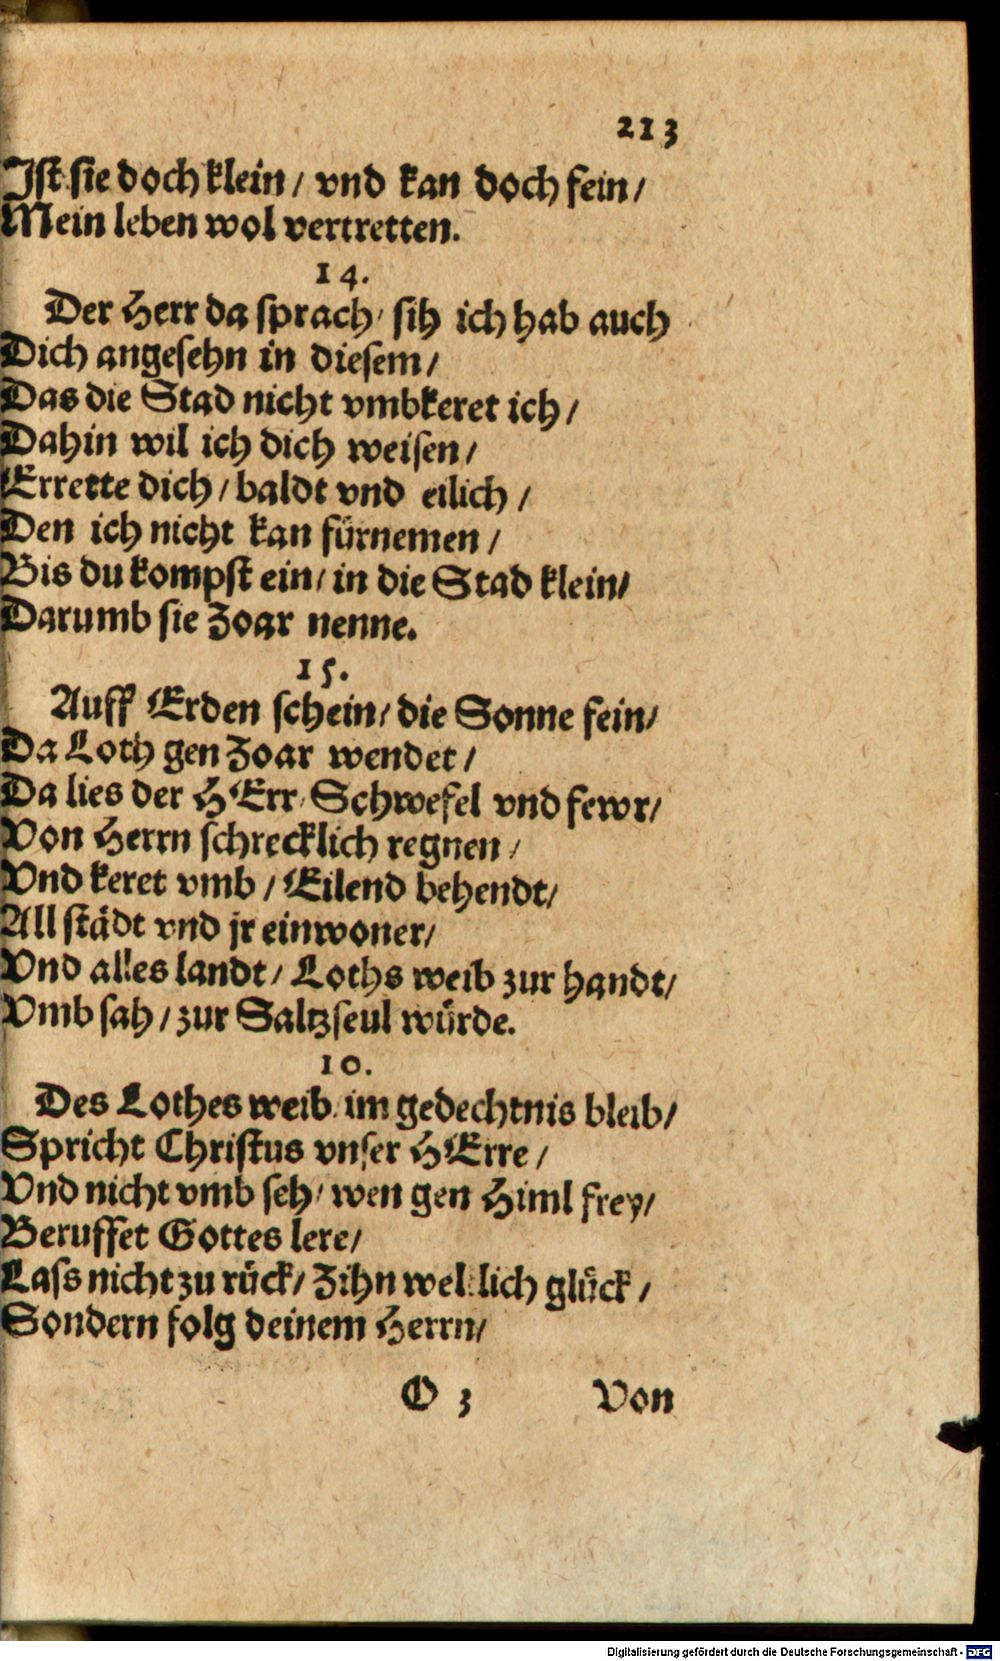 213
Ist sie doch klein / vnd kan doch fein /
Mein leben wol vertretten.
14.
Der Herr da sprach / sih ich hab auch
Dich angesehn in diesem /
Das die Stad nicht vmbkeret ich /
Dahin wil ich dich weisen /
Errette dich / baldt vnd eilich /
Den ich nicht kan fürnemen /
Bis du kompst ein / in die Stad klein /
Darumb sie Zoar nenne.
15.
Auff Erden schein / die Sonne fein /
Da Loth gen Zoar wendet /
Da lies der HErr / Schwefel vnd fewr /
Von Herrn schrecklich regnen /
Vnd keret vmb / Eilend behendt /
All städt vnd jr einwoner /
Vnd alles landt / Loths weib zur handt /
Vmb sah / zur Saltzseul würde.
10.
Des Lothes weib im gedechtnis bleib /
Spricht Christus vnser HErre /
Vnd nicht vmb seh / wen gen Himl frey /
Beruffet Gottes lere /
Lass nicht zu rück / Zihn weltlich glück /
Sondern folg deinem Herrn /
O 3 Von
Digitalisierung gefördert durch die Deutsche Forschungsgemeinschaft - DFG